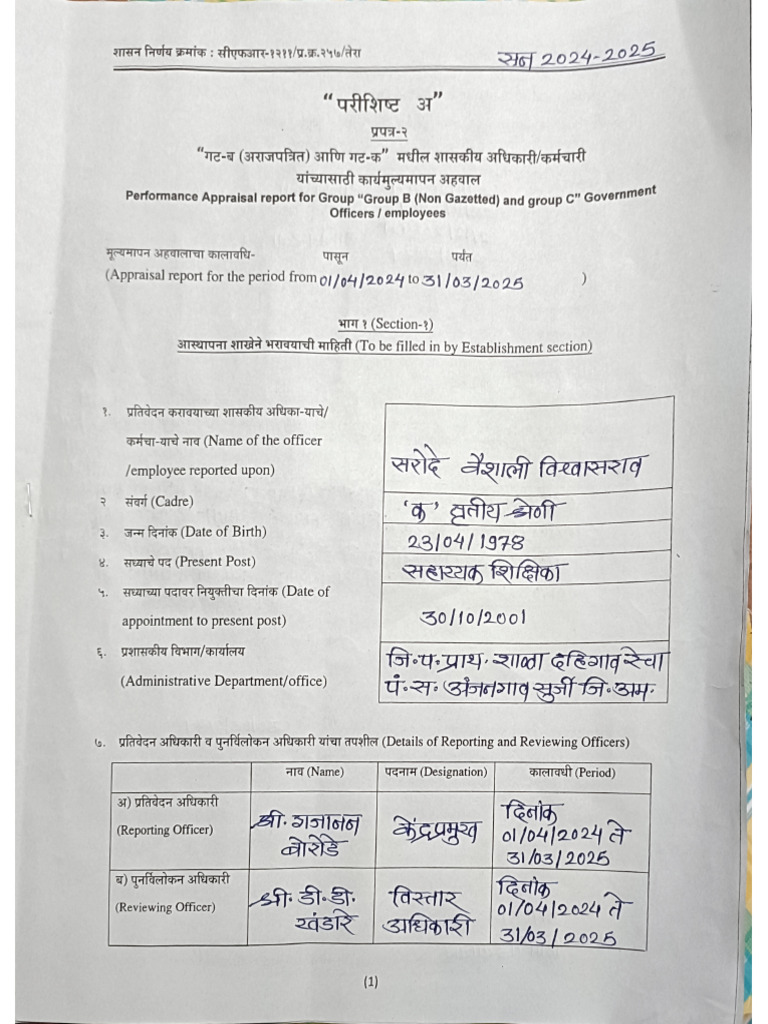 शासन निर्णय क्रमांक : सीएफआर-१२११/प्र.क्र.२५७/तेरा
सन 2024-2025
“परीशिष्ट अ”
प्रपत्र-२
“गट-ब (अराजपत्रित) आणि गट-क” मधील शासकीय अधिकारी/कर्मचारी
यांच्यासाठी कार्यमुल्यमापन अहवाल
Performance Appraisal report for Group “Group B (Non Gazetted) and group C” Government
Officers / employees
मूल्यमापन अहवालाचा कालावधि- पासून पर्यत
(Appraisal report for the period from 01/04/2024 to 31/03/2025 )
भाग १ (Section-१)
आस्थापना शाखेने भरावयाची माहिती (To be filled in by Establishment section)
१. प्रतिवेदन करावयाच्या शासकीय अधिका-याचे/
कर्मचा-याचे नाव (Name of the officer
/employee reported upon)
सरोदे वैशाली विश्वासराव
२ संवर्ग (Cadre) 'क' तृतीय श्रेणी
३. जन्म दिनांक (Date of Birth) 23/04/1978
४. सध्याचे पद (Present Post) सहाय्यक शिक्षिका
५. सध्याच्या पदावर नियुक्तीचा दिनांक (Date of
appointment to present post) 30/10/2001
६. प्रशासकीय विभाग/कार्यालय जि.प.प्राथ. शाळा दहिगाव रेचा
(Administrative Department/office) पं.स. अंजनगाव सुर्जी जि.अम.
७. प्रतिवेदन अधिकारी व पुनर्विलोकन अधिकारी यांचा तपशील (Details of Reporting and Reviewing Officers)
नाव (Name) पदनाम (Designation) कालावधी (Period)
अ) प्रतिवेदन अधिकारी
(Reporting Officer)
श्री. गजानन
बोरोडे
केंद्रप्रमुख
दिनांक
01/04/2024 ते
31/03/2025
ब) पुनर्विलोकन अधिकारी
(Reviewing Officer)
श्री. डी. डी.
खंडारे
विस्तार
अधिकारी
दिनांक
01/04/2024 ते
31/03/2025
(1)